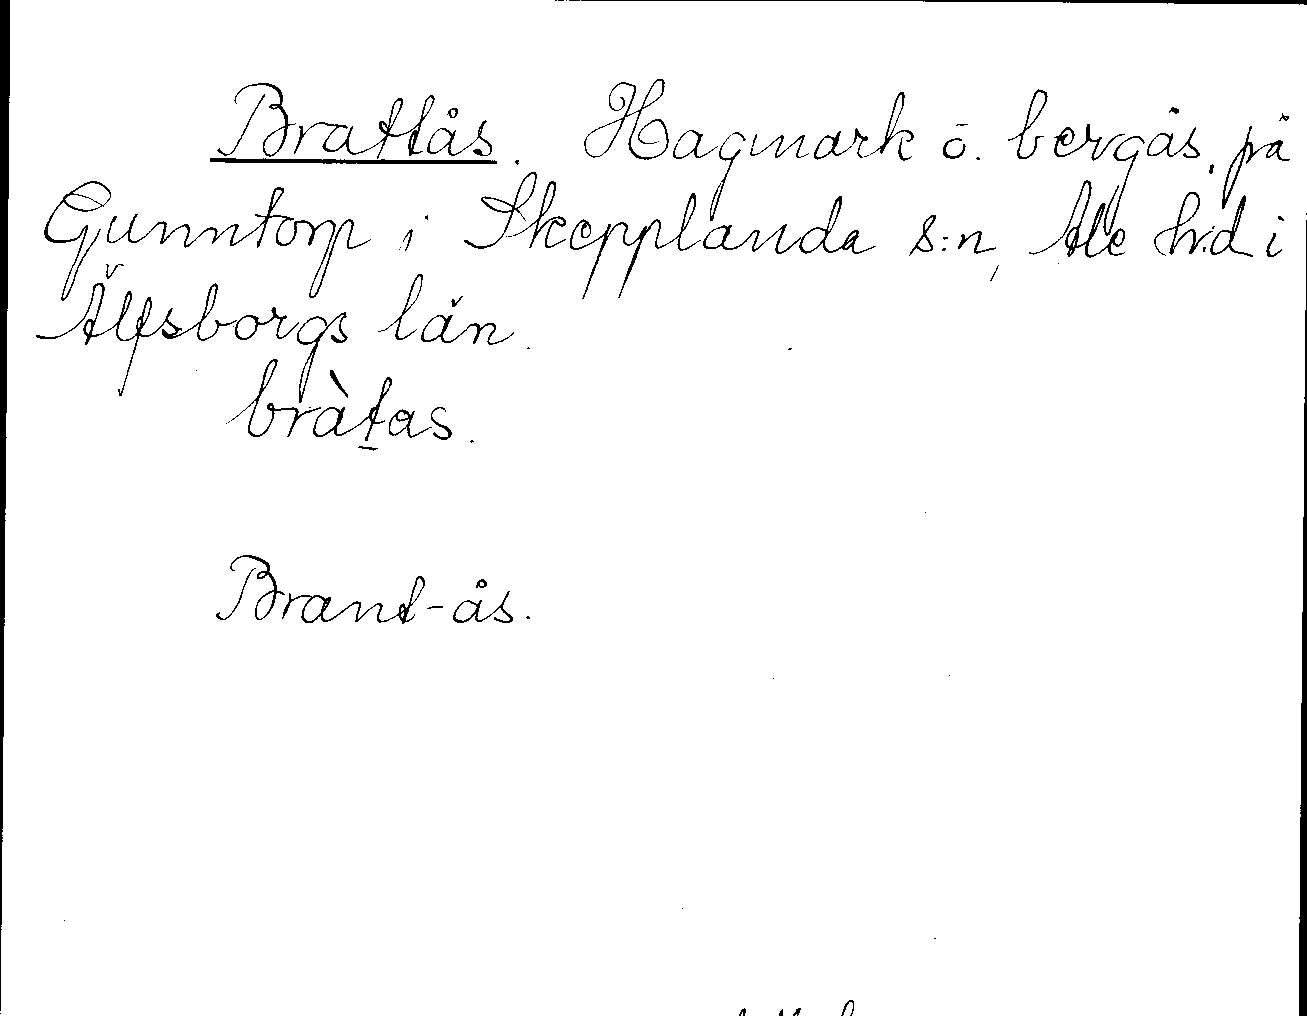 Brattås. Hagmark ō. bergås, på
Gunntorp i Skepplanda s:n, Ale h:d i
Älfsborgs län.
bràṯas.
Brant-ås.